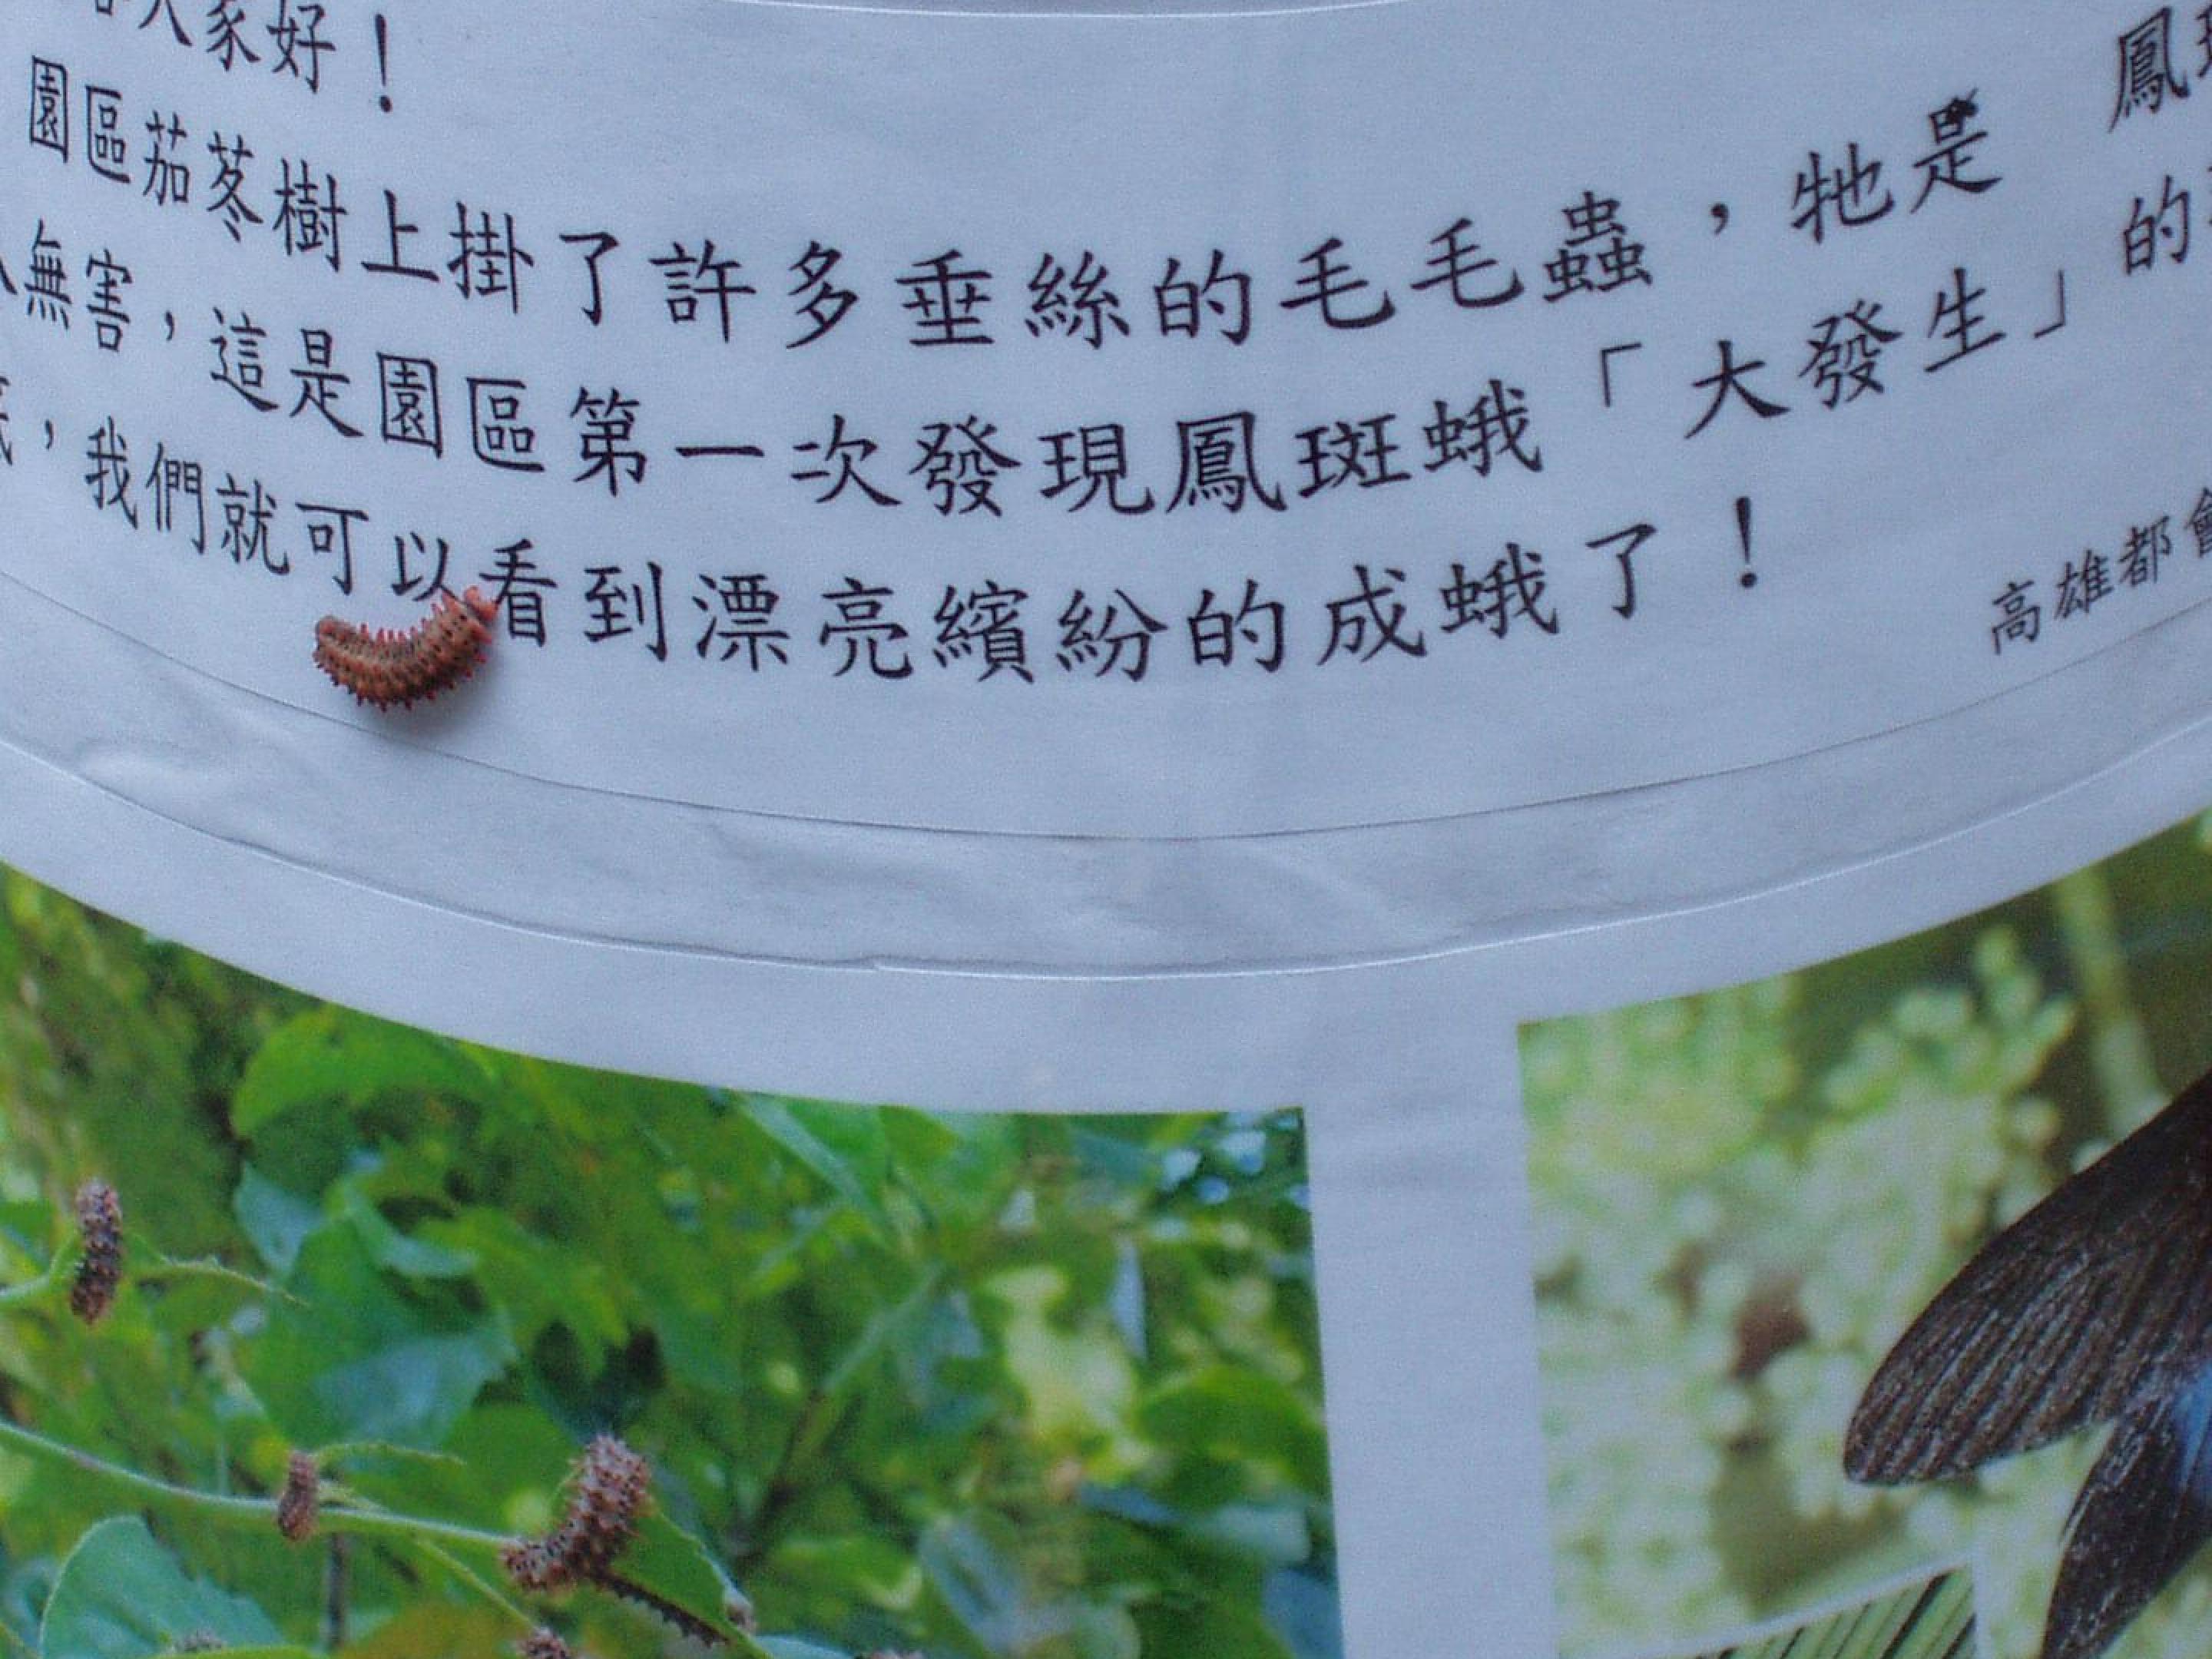 大家好！
園區茄苳樹上掛了許多垂絲的毛毛蟲，牠是 鳳斑
無害，這是園區第一次發現鳳斑蛾「大發生」的
，我們就可以看到漂亮繽紛的成蛾了！
高雄都會